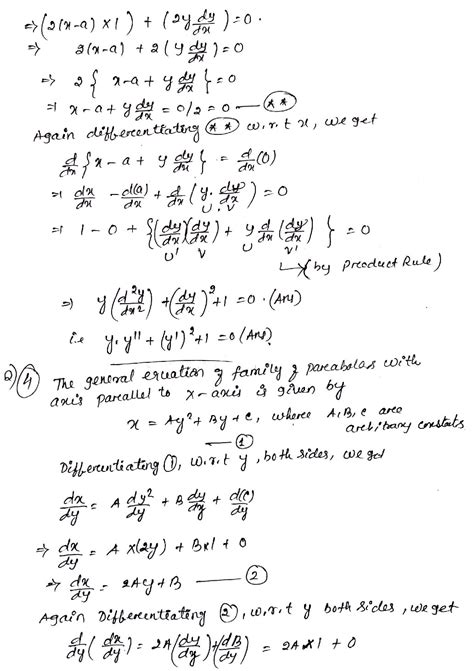 ⇒ (2(x-a) × 1) + (2y dy/dx) = 0.
⇒ 2(x-a) + 2(y dy/dx) = 0
⇒ 2{x-a + y dy/dx} = 0
⇒ x-a + y dy/dx = 0/2 = 0 — (**)
Again differentiating (**) w.r.t x, we get
d/dx {x-a + y dy/dx} = d/dx (0)
⇒ dx/dx - d(a)/dx + d/dx (y. dy/dx) = 0
U . V
⇒ 1 - 0 + {(dy/dx)(dy/dx) + y d/dx (dy/dx)} = 0
U' V U V'
↳ (by Product Rule)
⇒ y(d²y/dx²) + (dy/dx)² + 1 = 0. (Ans)
i.e y. y" + (y')² + 1 = 0 (Ans).
2) (4) The general equation of family of parabolas with
axis parallel to x-axis is given by
x = Ay² + By + C, where A, B, C are
arbitrary constants
— (1)
Differentiating (1), w.r.t y, both sides, we get
dx/dy = A dy²/dy + B dy/dy + d(C)/dy
⇒ dx/dy = A × (2y) + B×1 + 0
⇒ dx/dy = 2Ay + B — (2)
Again Differentiating (2), w.r.t y both sides, we get
d/dy (dx/dy) = 2A (dy/dy) + (dB/dy) = 2A × 1 + 0